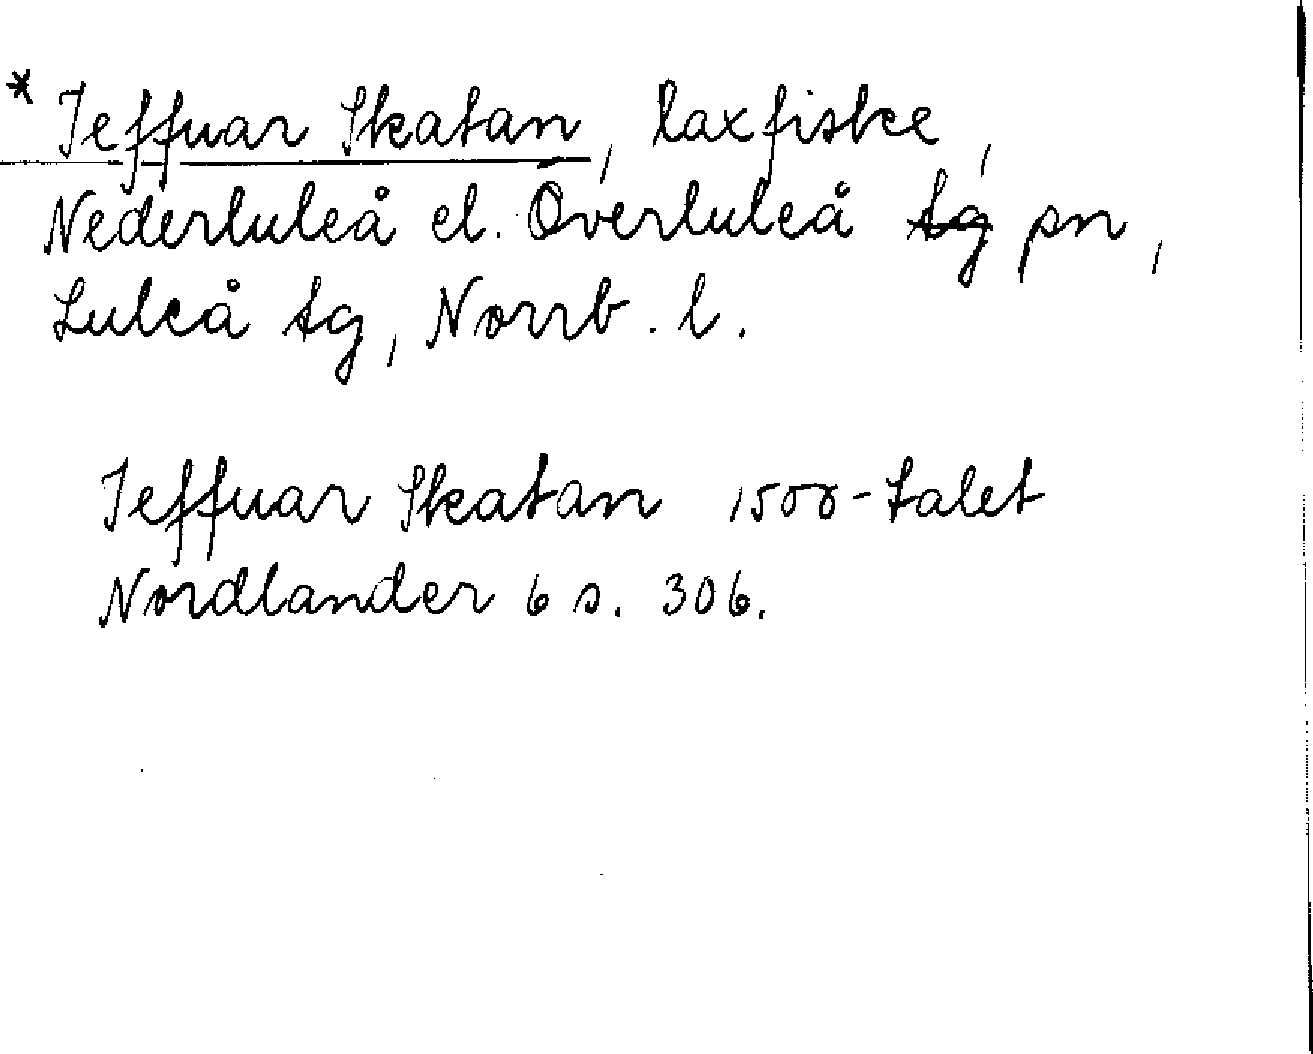 * Jeffuar Skatan, laxfiske,
Nederluleå el. Överluleå tg pn,
Luleå tg, Norrb. l.
Jeffuar Skatan 1500-talet
Nordlander 6 s. 306.